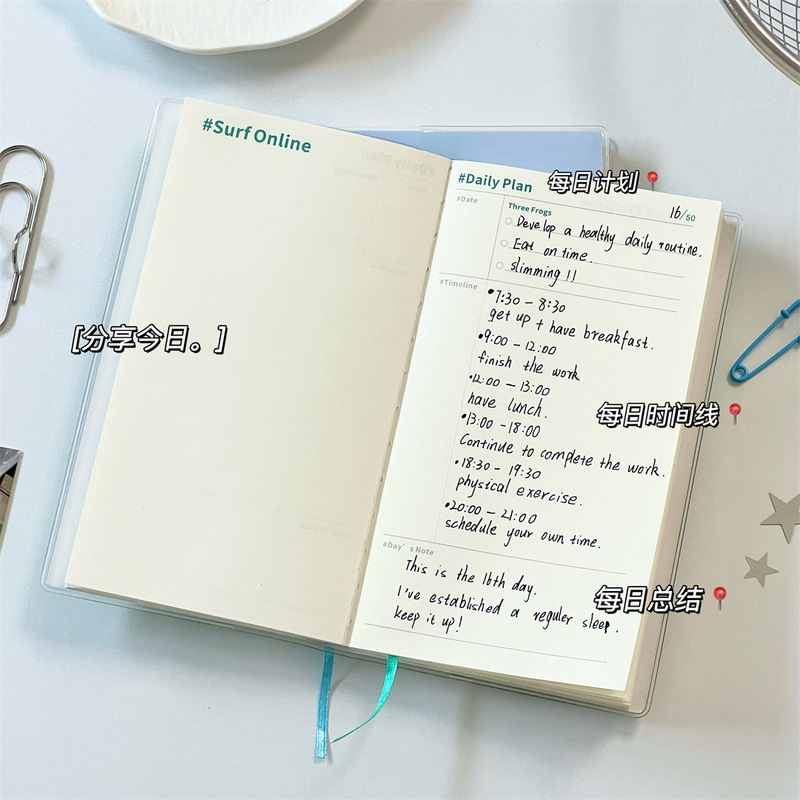 #Surf Online
[分享今日。]
#Daily Plan
每日计划
16/50
#Date
Three Frogs
Develop a healthy daily routine.
Eat on time.
slimming !!
#Timeline
•7:30 - 8:30
get up + have breakfast.
•9:00 - 12:00
finish the work
•12:00 - 13:00
have lunch.
每日时间线
•13:00 - 18:00
Continue to complete the work.
•18:30 - 19:30
physical exercise.
•20:00 - 21:00
schedule your own time.
#Day's Note
This is the 16th day.
I've established a reguler sleep.
keep it up!
每日总结